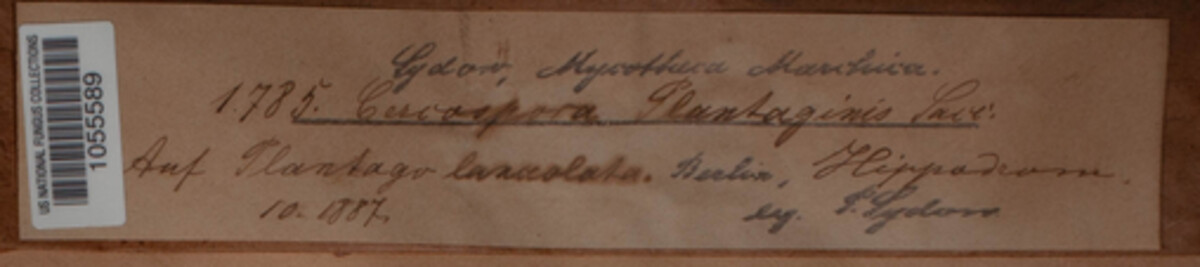 US NATIONAL FUNGUS COLLECTIONS
1055589
Sydow, Mycotheca Marchica.
1.785. Cercospora Plantaginis Sacc.
Auf Plantago lanceolata. Berlin, Hippodrom.
10. 1887. leg. P. Sydow